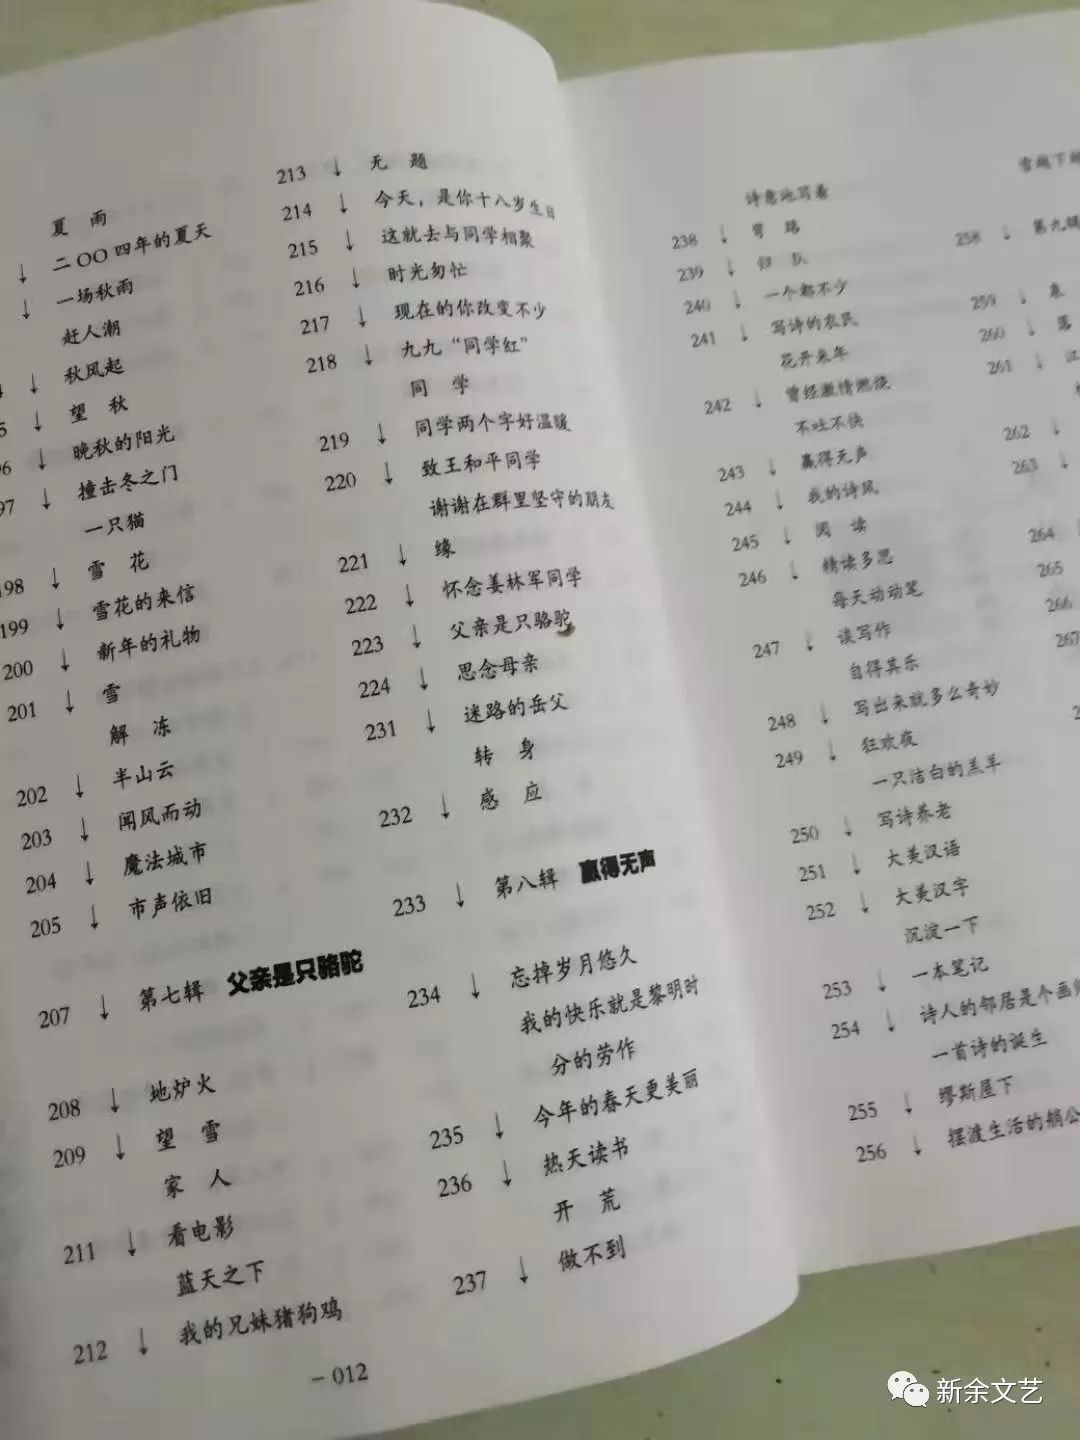 夏 雨
↓ 二〇〇四年的夏天
↓ 一场秋雨
赶人潮
↓ 秋风起
↓ 望 秋
↓ 晚秋的阳光
↓ 撞击冬之门
一只猫
198 ↓ 雪 花
199 ↓ 雪花的来信
200 ↓ 新年的礼物
201 ↓ 雪
解 冻
202 ↓ 半山云
203 ↓ 闻风而动
204 ↓ 魔法城市
205 ↓ 市声依旧
207 ↓ 第七辑 父亲是只骆驼
208 ↓ 地炉火
209 ↓ 望 雪
家 人
211 ↓ 看电影
蓝天之下
212 ↓ 我的兄妹猪狗鸡
213 ↓ 无 题
214 ↓ 今天，是你十八岁生日
215 ↓ 这就去与同学相聚
216 ↓ 时光匆忙
217 ↓ 现在的你改变不少
218 ↓ 九九“同学红”
同 学
219 ↓ 同学两个字好温暖
220 ↓ 致王和平同学
谢谢在群里坚守的朋友
221 ↓ 缘
222 ↓ 怀念姜林军同学
223 ↓ 父亲是只骆驼
224 ↓ 思念母亲
231 ↓ 迷路的岳父
转 身
232 ↓ 感 应
233 ↓ 第八辑 赢得无声
234 ↓ 忘掉岁月悠久
我的快乐就是黎明时
分的劳作
235 ↓ 今年的春天更美丽
236 ↓ 热天读书
开 荒
237 ↓ 做不到
－012
诗意地写着
238 ↓ 弯 路
239 ↓ 归 队
240 ↓ 一个都不少
241 ↓ 写诗的农民
花开来年
242 ↓ 曾经激情燃烧
不吐不快
243 ↓ 赢得无声
244 ↓ 我的诗风
245 ↓ 阅 读
246 ↓ 精读多思
每天动动笔
247 ↓ 谈写作
自得其乐
248 ↓ 写出来就多么奇妙
249 ↓ 狂欢夜
一只洁白的羔羊
250 ↓ 写诗养老
251 ↓ 大美汉语
252 ↓ 大美汉字
沉淀一下
253 ↓ 一本笔记
254 ↓ 诗人的邻居是个画
一首诗的诞生
255 ↓ 缪斯屋下
256 ↓ 摆渡生活的艄公
雪越下越
258 ↓ 第九辑
259 ↓
260 ↓ 落
261 ↓ 江
262 ↓
263 ↓
264
265
266
267
新余文艺